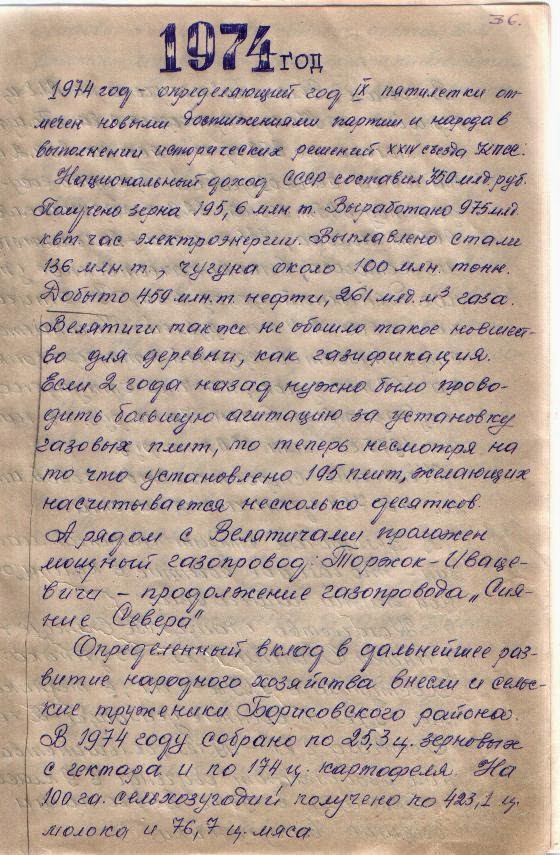 36.
1974 год
1974 год - определяющий год IX пятилетки от-
мечен новыми достижениями партии и народа в
выполнении исторических решений XXIV съезда КПСС.
Национальный доход СССР составил 350 млд. руб.
Получено зерна 195,6 млн т. Выработано 975 млд.
квт. час электроэнергии. Выплавлено стали
136 млн. т, чугуна около 100 млн. тонн.
Добыто 459 млн. т. нефти, 261 млд. м³ газа.
Велятичи также не обошло такое новшест-
во для деревни, как газификация.
Если 2 года назад нужно было прово-
дить большую агитацию за установку
газовых плит, то теперь несмотря на
то что установлено 195 плит, желающих
насчитывается несколько десятков.
А рядом с Велятичами проложен
мощный газопровод: Торжок-Иваце-
вичи - продолжение газопровода „Сия-
ние Севера"
Определенный вклад в дальнейшее раз-
витие народного хозяйства внесли и сельс-
кие труженики Борисовского района.
В 1974 году собрано по 25,3 ц. зерновых
с гектара и по 174 ц. картофеля. На
100 га. сельхозугодий получено по 423,1 ц.
молока и 76,7 ц. мяса